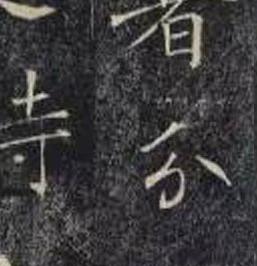 者分
寺